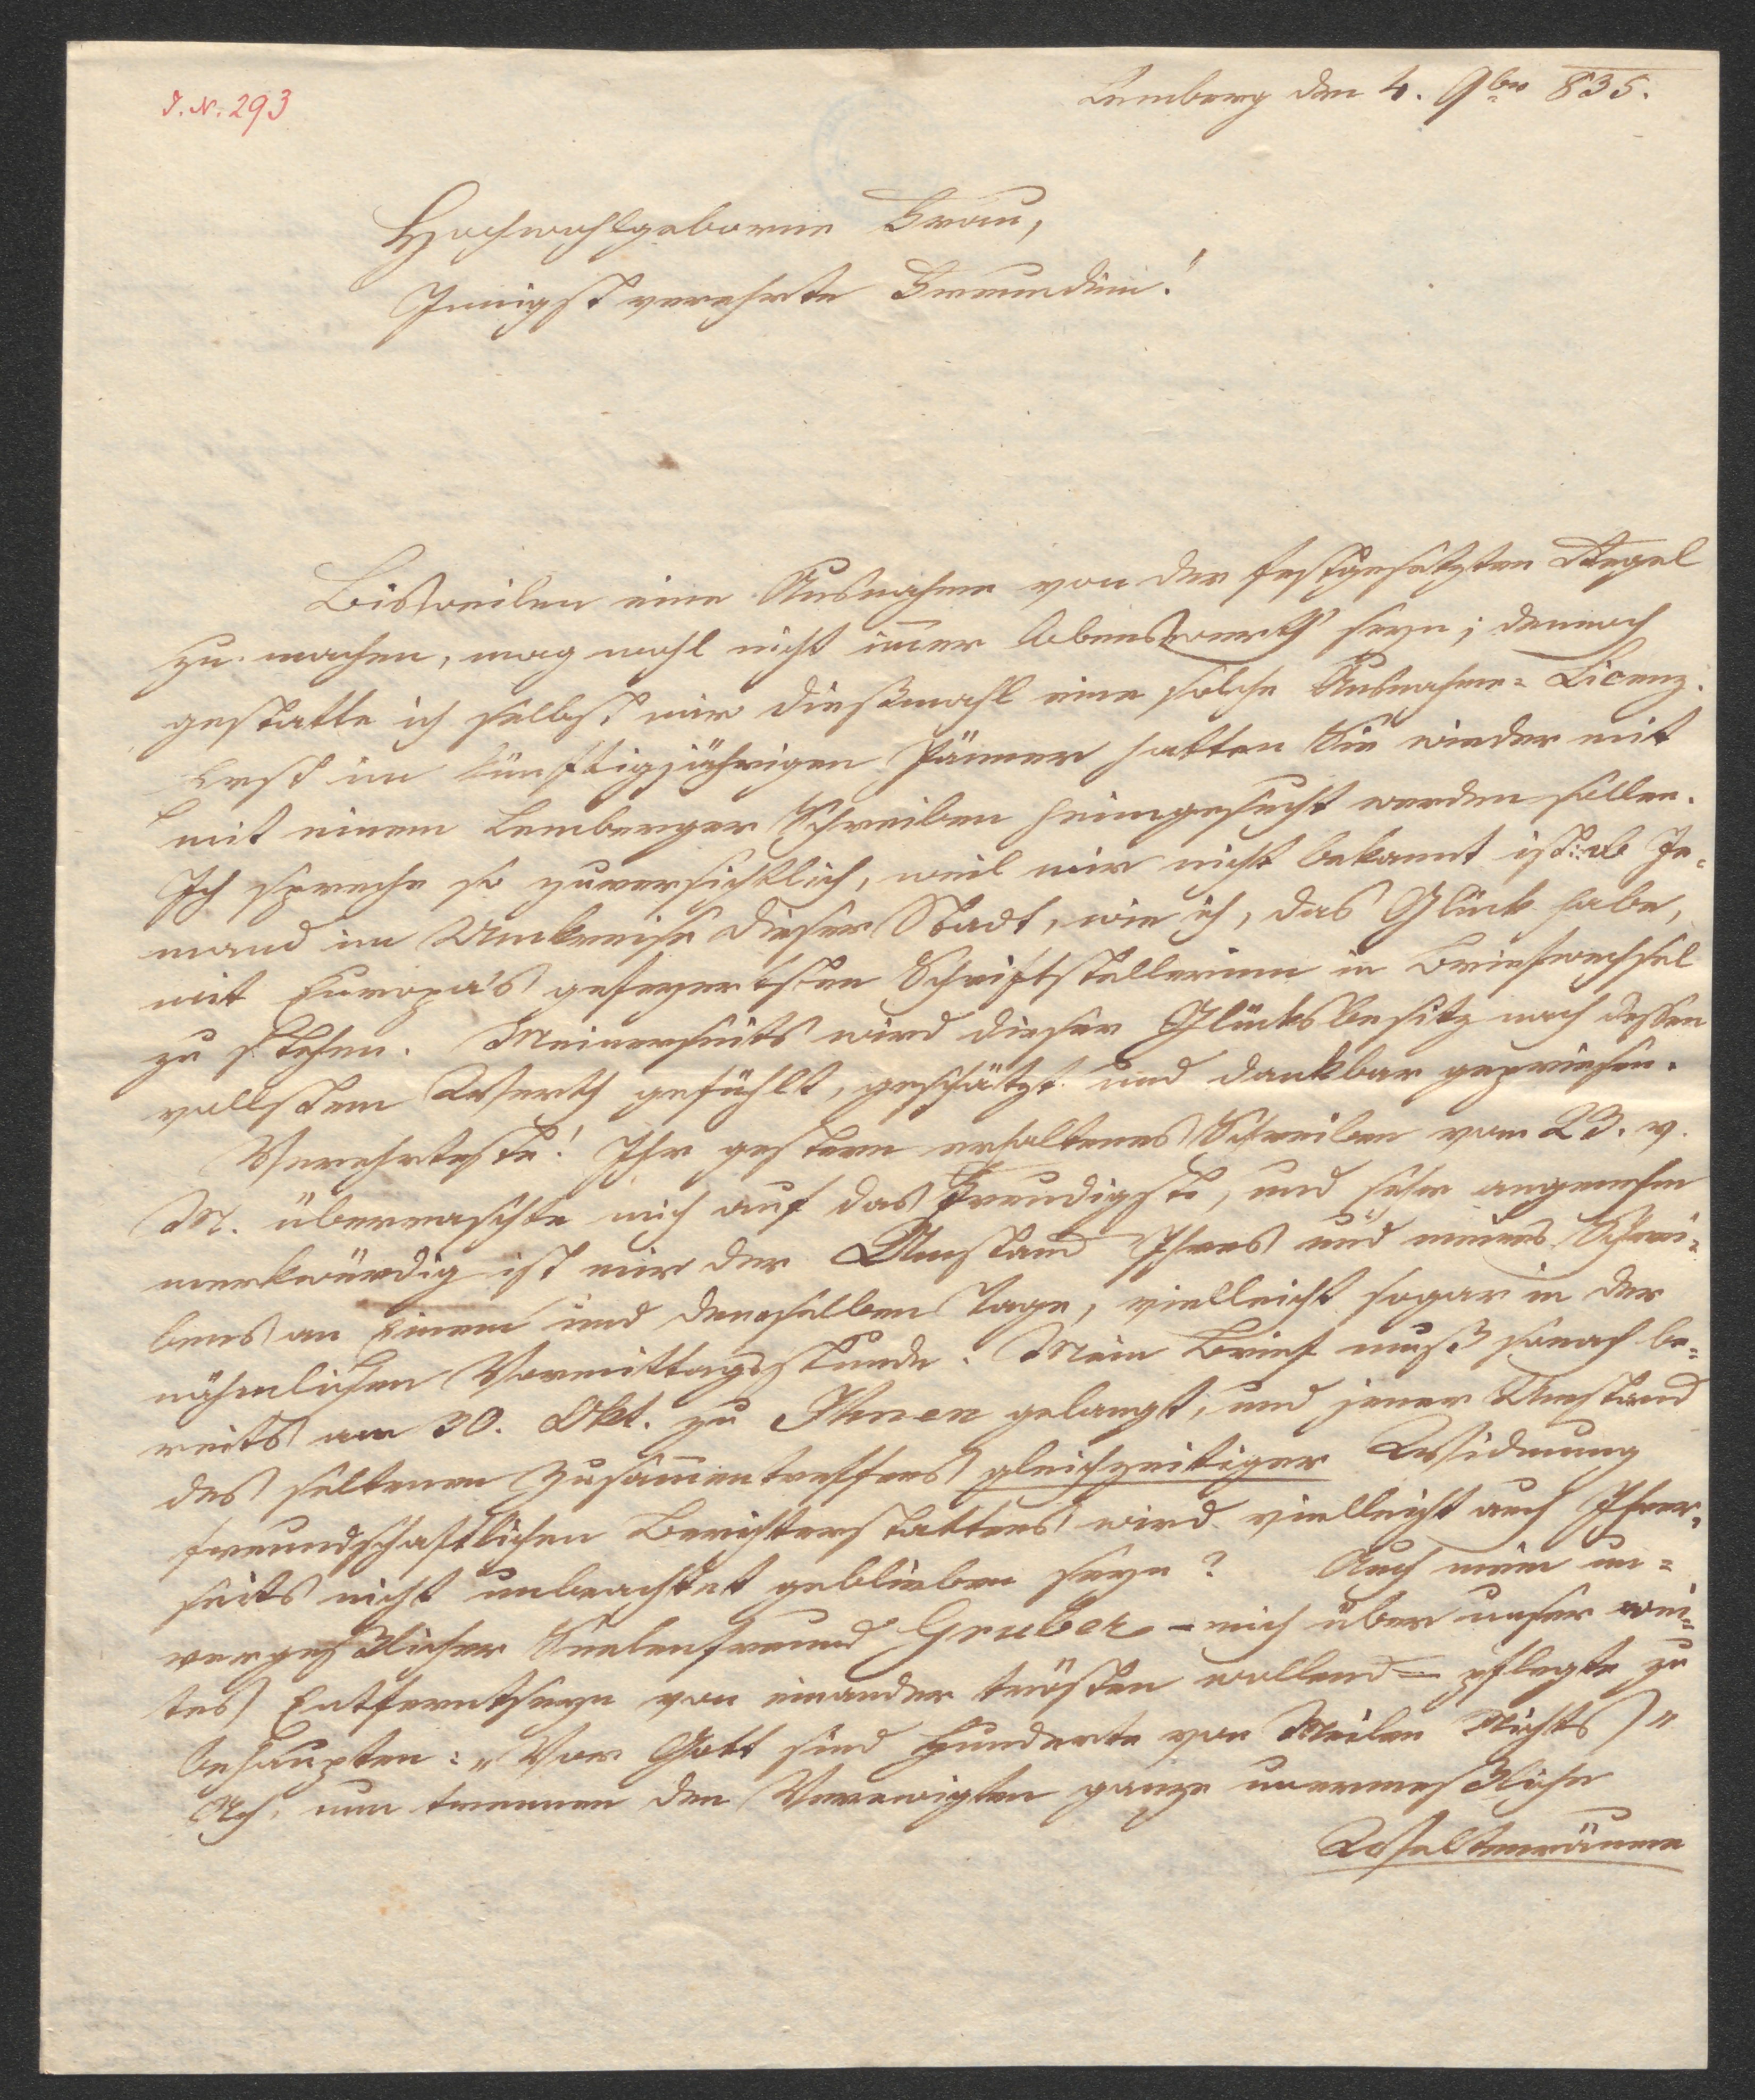 J. N. 293
Lemberg den 4. 9ber 835.
Hochwohlgeborne Frau,
Innigst verehrte Freundinn!
Bisweilen eine Ausnahme von der festgesetzten Regel
zu machen, mag wohl nicht im̅er lobenswerth seyn; dennoch
gestatte ich selbst mir dießmahl eine solche Ausnahms-Licenz.
Erst im künftigjährigen Jänner hatten Sie wieder mit
mit einem Lemberger Schreiben heimgesucht werden sollen.
Ich spreche so zuversichtlich, weil mir nicht bekannt ist: ob Je-
mand im Umkreise dieser Stadt, wie ich, das Glück habe,
mit Europa's gefeyertsten Schriftstellerinn in Briefwechsel
zu stehen. Meinerseits wird dieser Glücksbesitz nach dessen
vollstem Werth gefühlt, geschätzt und dankbar gepriesen.
Verehrteste! Ihr gestern erhaltenes Schreiben vom 23. v.
M. überraschte mich auf das Freudigste, und sehr angenehm
merkwürdig ist mir der Umstand Ihres und meines Schrei-
bens an Einem und demselben Tage, vielleicht sogar in der
nähmlichen Vormittagsstunde. Mein Brief muß sonach be-
reits am 30. Okt. zu Ihnen gelangt, und jener Umstand
des seltenen Zusam̅entreffens gleichzeitiger Widmung
freundschaftlichen Berichterstattens wird vielleicht auch Ihrer-
seits nicht unbeachtet geblieben seyn? Auch mein un-
vergeßlicher Seelenfreund Gruber - mich über unser wei-
tes Entferntseyn von einander trösten wollend - pflegte zu
behaupten: „Vor Gott sind Hunderte von Meilen Nichts"
Ach, nun trennen den Verewigten ganze unermeßliche
Weltenräume